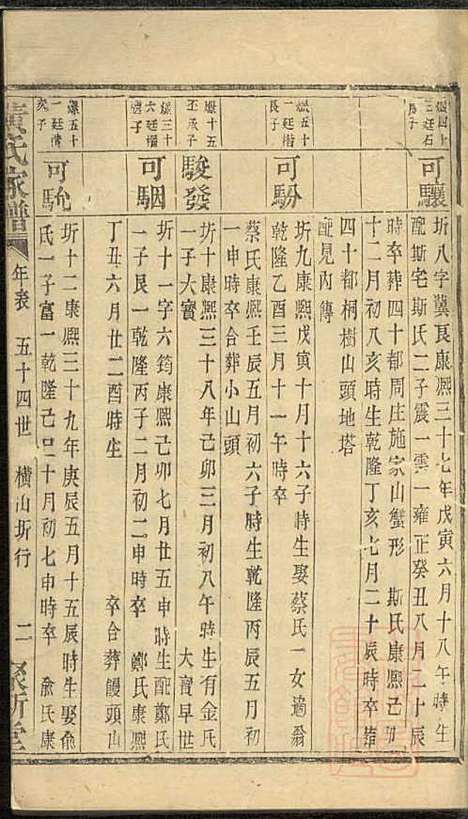 可驤
圻八字冀良康熙三十七年戊寅六月十八午時生
配斯宅斯氏二子震一雲一雍正癸丑八月二十辰
時卒葬四十都周庄施家山蟹形 斯氏康熙己卯
十二月初八亥時生乾隆丁亥七月二十辰時卒葬
四十都桐樹山頭地塔
爆五十
一廷楷
長子
可馚
配見內傳
圻九康熙戊寅十月十六子時生娶蔡氏一女適翁
乾隆乙酉三月十一午時卒
蔡氏康熙壬辰五月初六子時生乾隆丙辰五月初
一申時卒合葬小山頭
爆十五
丕承子
駿發
圻十康熙三十八年己卯三月初八午時生有金氏
一子大寶 大寶早世
爆三十
六廷櫂
遠子
可駰
圻十一字六筠康熙己卯七月廿五申時生配鄭氏
一子艮一乾隆丙子二月初二申時卒 鄭氏康熙
丁丑六月廿二酉時生 卒合葬饅頭山
爆五十
一廷楷
次子
可馻
圻十二康熙三十九年庚辰五月十五辰時生娶俞
氏一子富一乾隆己巳十月初七申時卒 俞氏康
黃氏家譜 年表 五十四世 橫山圻行 二 聚斯堂